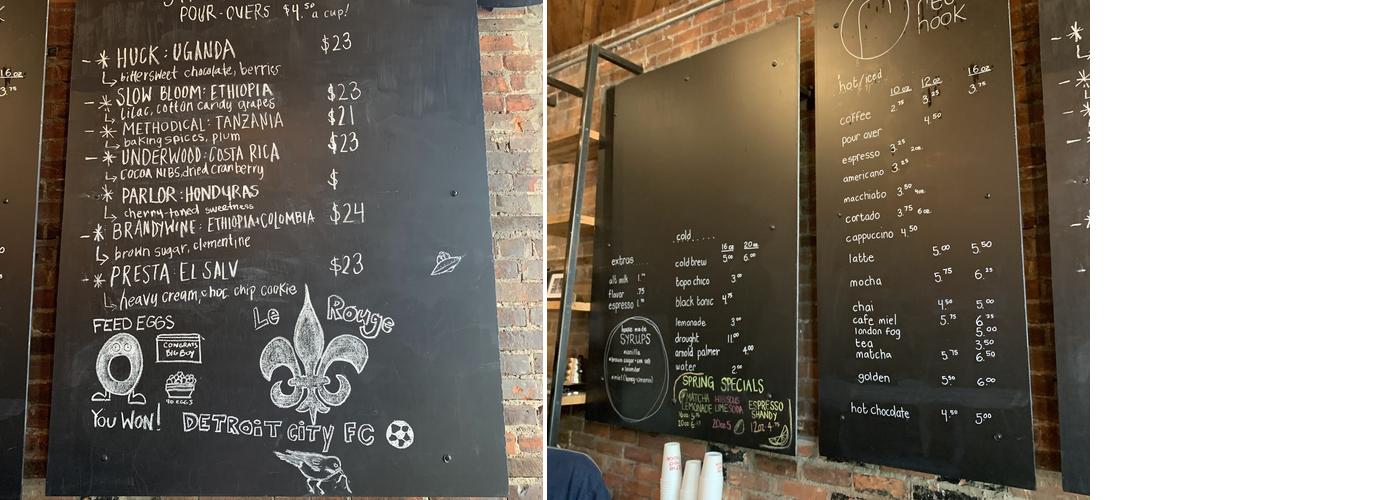 POUR-OVERS $4.50 a cup!
HUCK: UGANDA $23
bittersweet chocolate, berries
SLOW BLOOM: ETHIOPIA $23
lilac, cotton candy grapes
METHODICAL: TANZANIA $21
baking spices, plum
UNDERWOOD: COSTA RICA $23
COCOA NIBS, dried cranberry
PARLOR: HONDURAS $
cherry-toned sweetness
BRANDYWINE: ETHIOPIA+COLOMBIA $24
brown sugar, clementine
PRESTA: EL SALV $23
heavy cream, choc. chip cookie
Le Rouge
FEED EGGS
CONGRATS
BIG BOY
40 EGGS
YOU WON!
DETROIT CITY FC
16 oz
3.75
extras
alt milk 1.
flavor .75
espresso 1.
house made
SYRUPS
vanilla
brown sugar sea salt
lavender
miel (honey-cinnamon)
cold.....
16 oz 20 oz
cold brew 5.00 6.00
topo chico 3.00
black tonic 4.75
lemonade 3.00
draught 11.00
arnold palmer 4.00
water 2.00
SPRING SPECIALS
MATCHA
LEMONADE
HIBISCUS
LIME SODA
20oz 5
ESPRESSO
SHANDY
12oz 4.75
red
hook
hot/iced
10 oz 12 oz 16 oz
coffee 2.75 3.25 3.75
pour over 4.50
espresso 3.25 2oz
americano 3.25
macchiato 3.50 4oz
cortado 3.75 6oz
cappuccino 4.50
latte 5.00 5.50
mocha 5.75 6.25
chai 4.50 5.00
cafe miel 5.75 6.25
london fog 5.00
tea 3.50
matcha 5.75 6.50
golden 5.50 6.00
hot chocolate 4.50 5.00